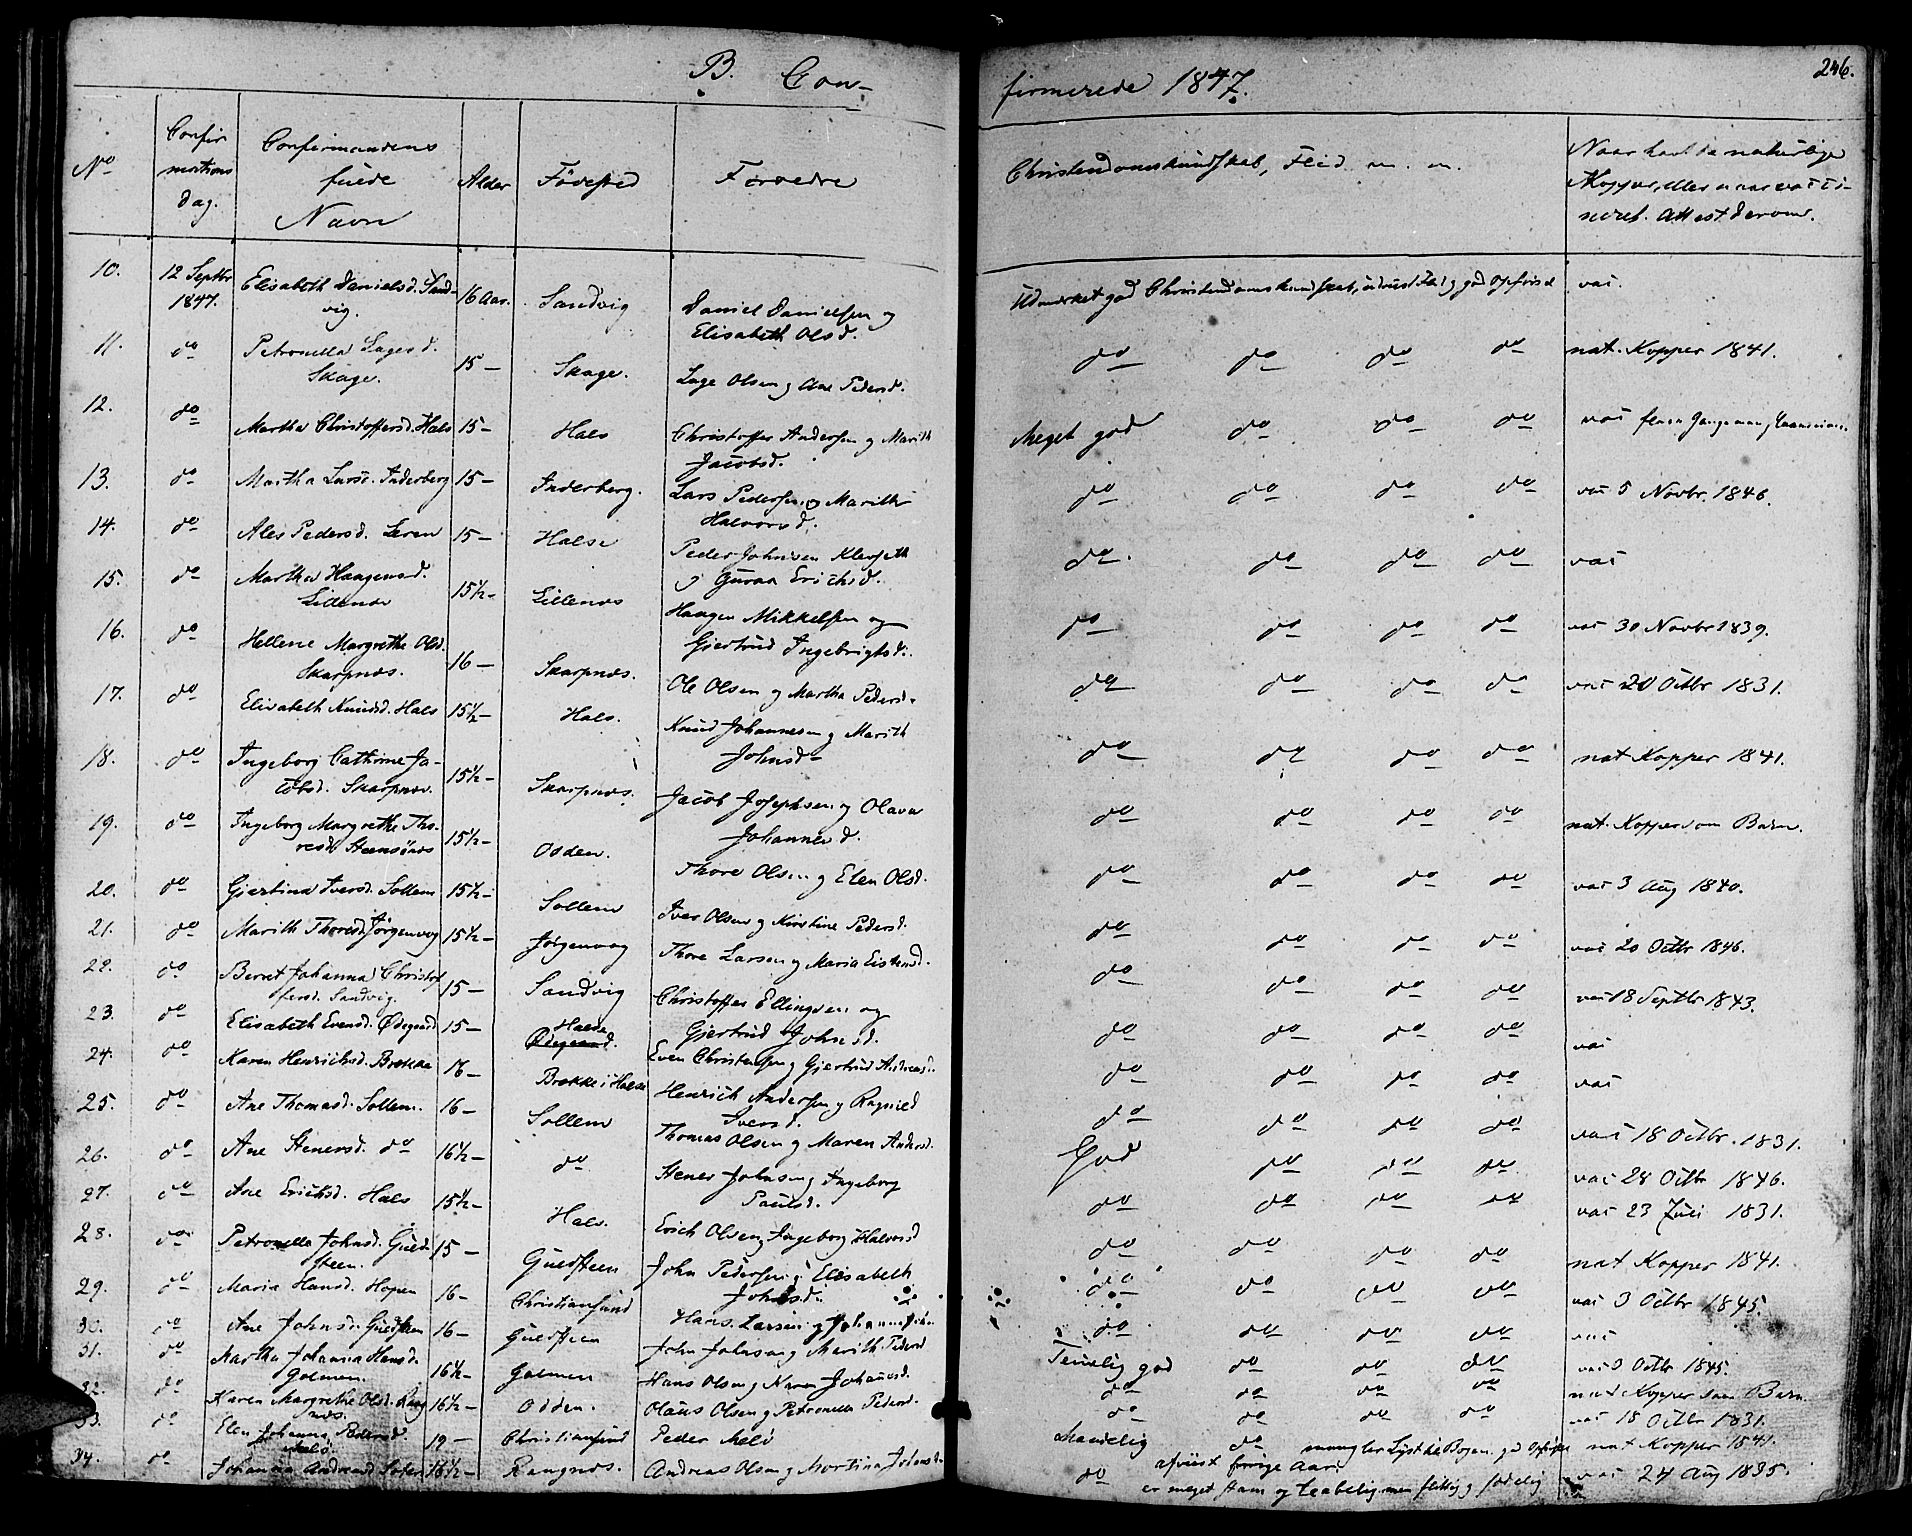 B. Con-
firmerede 1847.
246.
No
Confir
mations
dag.
Confirmandens
fulde
Navn
Alder
Fødested
Forældre
Christendomskundskab, Flid m. m.
Naar havt de naturlige
Kopper, eller naar vacci-
neret. Attest derom.
10. 12 Septbr 1847. Elisabeth Danielsd. Sand-
vig. 16 Aar. Sandvig Daniel Danielsen og
Elisabeth Olsd. Udmærket god Christendomskundskab, udvist Flid og god Opførsel vac.
11. do Petronella Lagesd.
Skage. 15 – Skage. Lage Olsen og Ane Pedersd. do do do do nat. Kopper 1841.
12. do Martha Christoffersd. Hals 15 – Hals Christoffer Andersen og Marith
Jacobsd. Meget god do do do vac
13. do Martha Larsd. Inderberg 15 – Inderberg. Lars Pedersen og Marith
Halvorsd. do do do do vac 5 Novbr. 1846.
14. do Ales Pedersd. Leren 15 – Halse Peder Johnsen Kleseth
og Guroa Erichsd. do do do do vac
15. do Martha Haagensd.
Lillenæs 15½ – Lillenæs Haagen Mikkelsen og
Gjertrud Ingebrigtsd. do do do do vac 30 Novbr 1839.
16. do Hellene Margrethe Olsd.
Skarpnæs. 16 – Skarpnæs. Ole Olsen og Martha Pedersd. do do do do vac 20 Octbr 1831.
17. do Elisabeth Knudsd. Hals 15½ – Hals. Knud Johannesen og Marith
Johnsd. do do do do nat Kopper 1841.
18. do Ingeborg Cathrine Ja-
cobsd. Skarpnæs. 15½ – Skarpnæs. Jacob Josephsen og Olava
Johannesd. do do do do nat. Kopper som Barn.
19. do Ingeborg Margrethe Tho-
resd. 15½ – Odden. Thore Olsen og Elen Olsd. do do do do vac 3 Aug 1840.
20. do Gjertina Iversd. Sollem 15½ – Sollem Iver Olsen og Kirstine Pedersd. do do do do vac 20 Octbr 1846.
21. do Marith Thoresd. Jørgenvog 15½ – Jørgenvog Thore Larsen og Maria Eistensd. do do do do vac 18 Septbr 1843.
22. do Beret Johanna Christof
fersd. Sandvig. 15 – Sandvig Christoffer Ellingsen og
Gjertrud Johnsd. do do do do vac
23. do Elisabeth Evensd. Ødegaard 15 – Halse
Ødegaard. Even Christensen og Gjertrud Andreasd. do do do do vac
24. do Karen Henrichsd. Brekke 16 – Brekke i Halse Henrich Andersen og Ragnild
Iversd. do do do do vac 18 Octbr. 1831.
25. do Ane Thomasd. Sollem. 16 – Sollem Thomas Olsen og Maren Andersd. God do do do vac 28 Octbr 1846.
26. do Ane Stenersd. do 16½ – do Stener Johnsen og Ingeborg
Paulsd. do do do do vac 23 Juli 1831.
27. do Ane Erichsd. Hals 15½ – Hals. Erich Olsen og Ingeborg Halvorsd do do do do nat Kopper 1841.
28. do Petronella Johnsd. Guld-
steen. 15 – Guldsteen John Pedersen og Elisabeth
Johnsd. do do do do vac 3 Octbr 1845.
29. do Maria Hansd. Hopen 16 – Christiansund Hans Larsen og do do do do vac
30. do Ane Johnsd. Guldsteen 16 – Guldsteen John Johnsen og Marith Pedersd Temelig god do do do vac 3 Octbr 1845.
31. do Martha Johanna Hansd.
Golmen. 16½ – Golmen Hans Olsen og Maren Johansd. do do do do nat Kopper som Barn
32. do Karen Margrethe Olsd. Rang
næs. 16½ – Odden. Olaus Olsen og Petronella Pedersd. do do do do vac 18 Octbr 1831.
33. do Elen Johanna Pedersd
Melø 19 – Christiansund Peder Melø Maadelig do mangler Lyst til Bogen. god Opførsel nat Kopper 1841.
afviist forrige Aar.
34. do Johanna Andreasd 16½ – Rangnæs. Andreas Olsen og Martina Johansd. do er meget stam og men flittig og sædelig vac 24 Aug 1835.